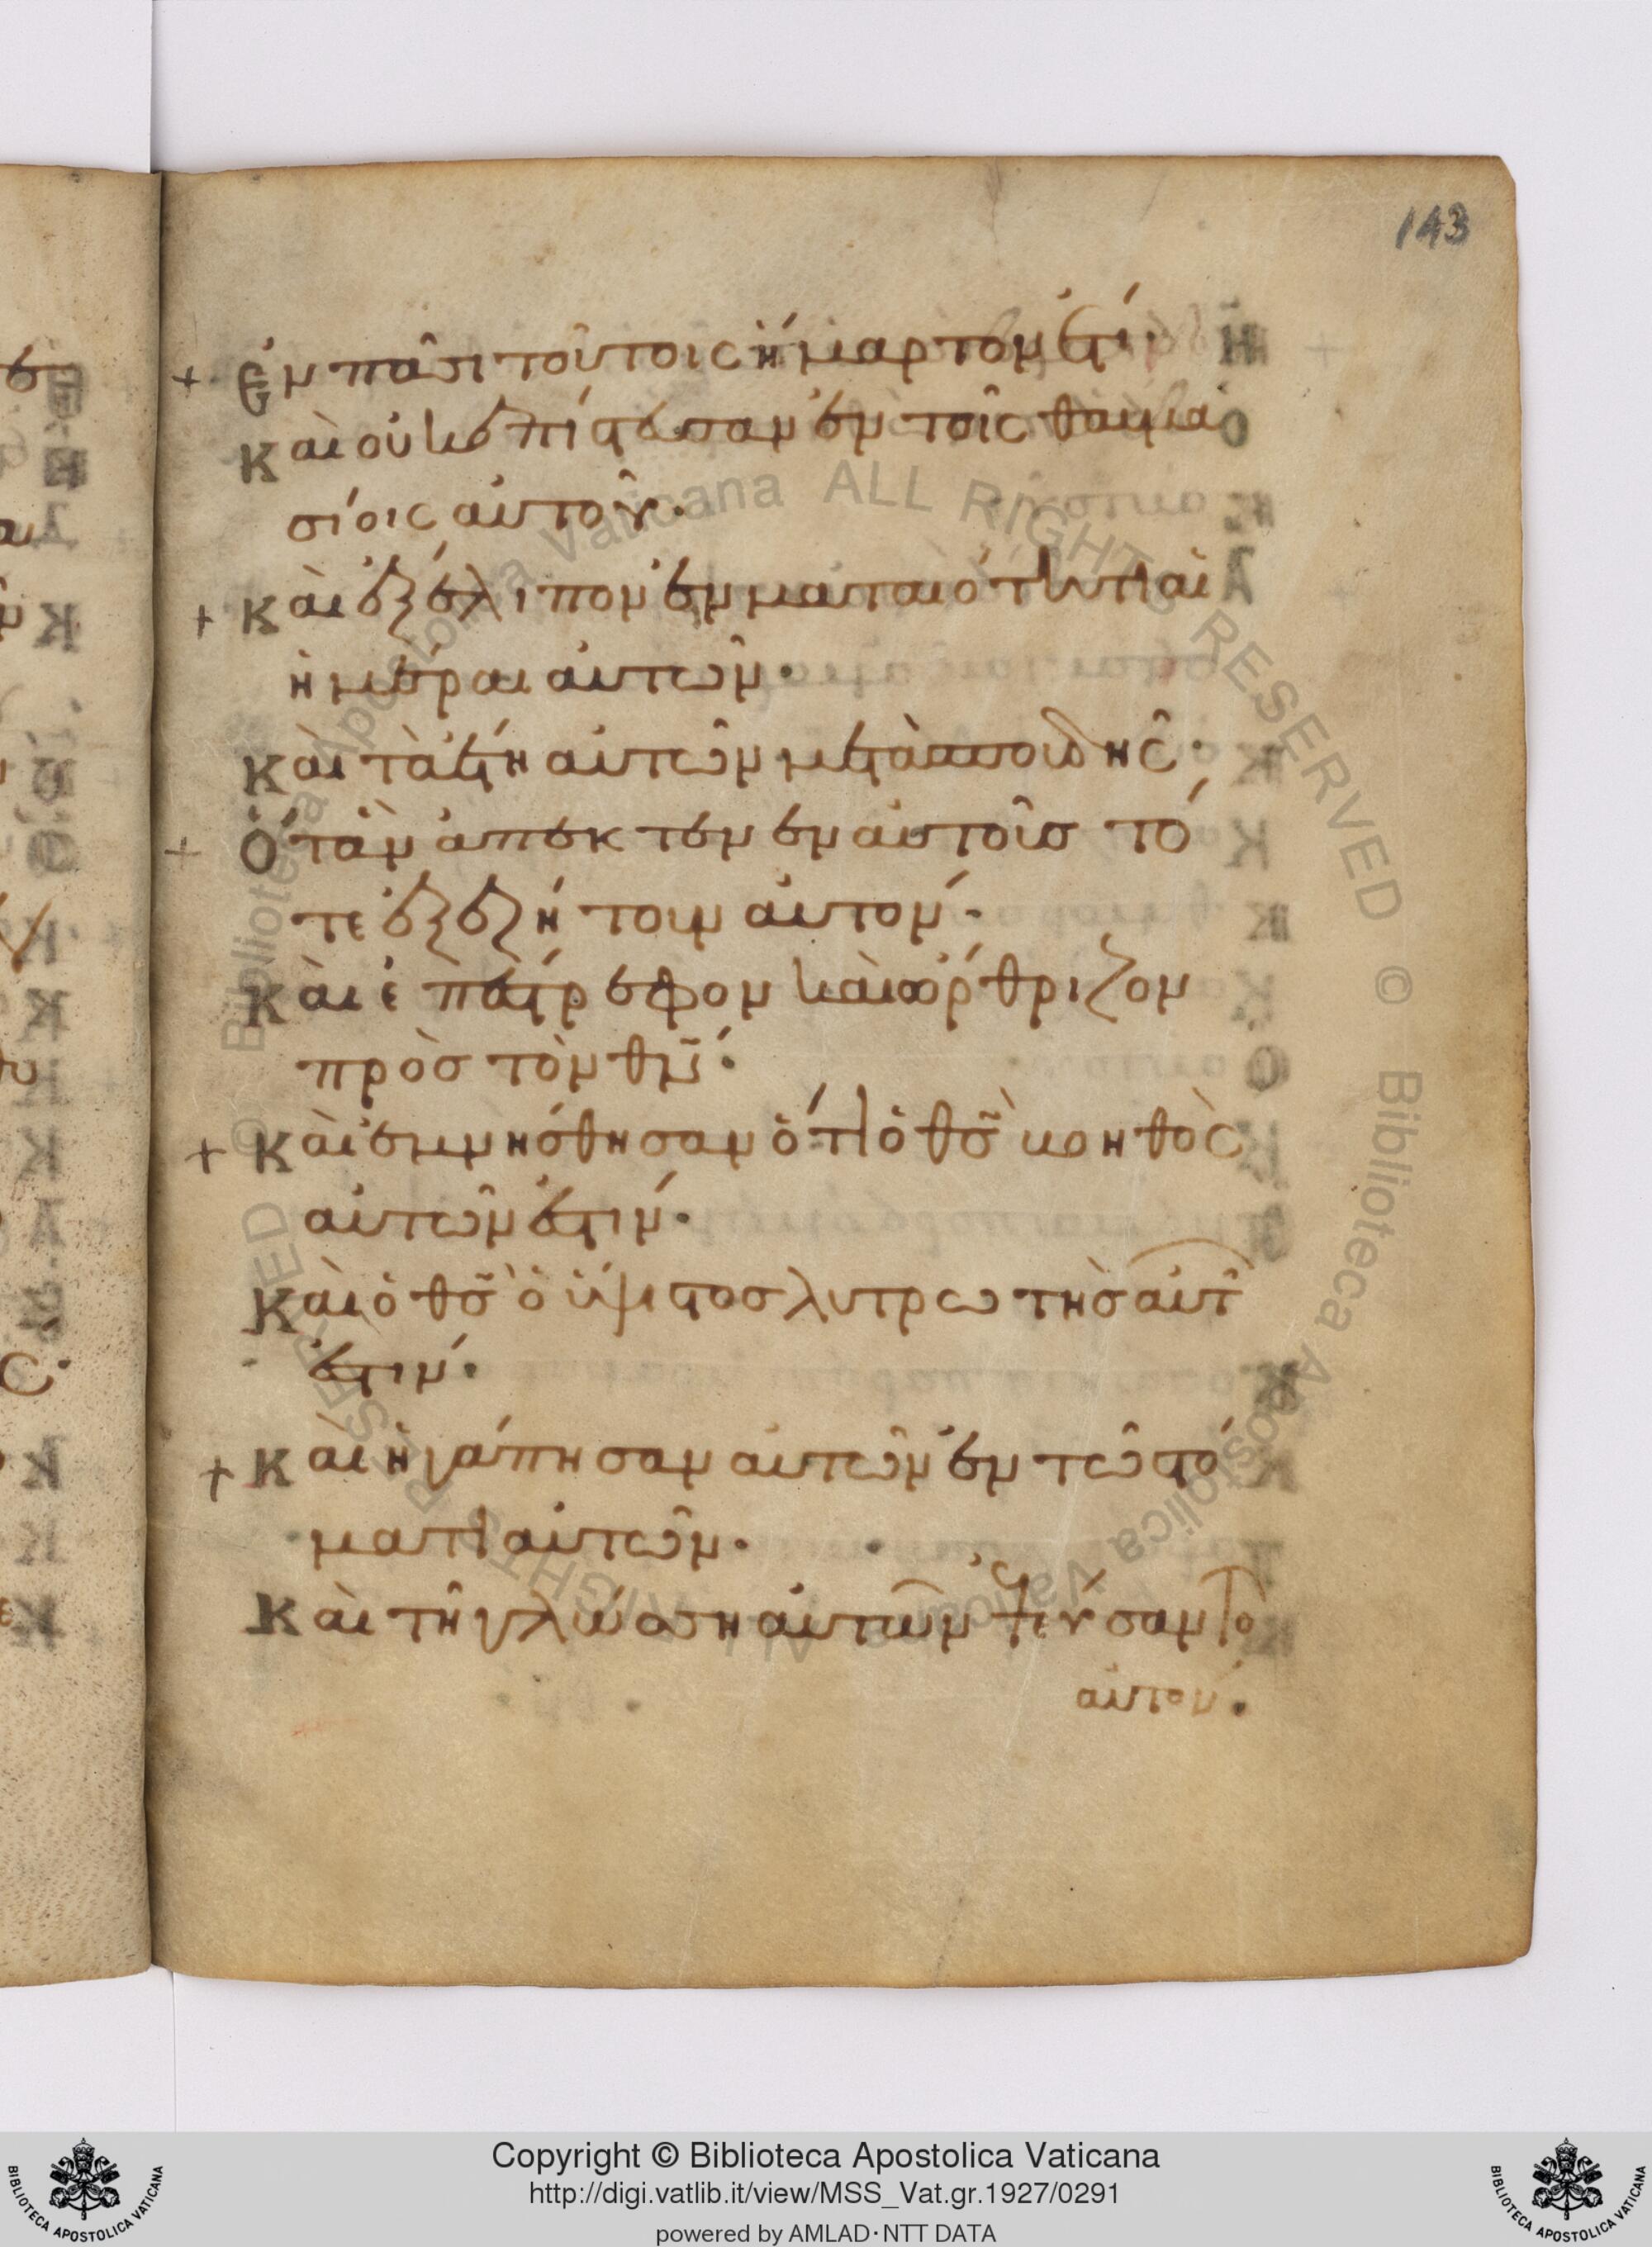 143
+ Ἐν πᾶσι τούτοις ἥμαρτον ἔτι·
Καὶ οὐκ ἐπίστευσαν ἐν τοῖς θαυμα
σίοις αὐτοῦ·
+ Καὶ ἐξέλιπον ἐν ματαιότητι αἱ
ἡμέραι αὐτῶν·
Καὶ τὰ ἔτη αὐτῶν μετὰ σπουδῆς·
+ Ὅταν ἀπέκτεν ἐν αὐτοὺς τό
τε ἐξεζήτουν αὐτόν·
Καὶ ἐπέστρεφον καὶ ὤρθριζον
πρὸς τὸν θν̄·
+ Καὶ ἐμνήσθησαν ὅτι ὁ θς̄ βοηθὸς
αὐτῶν ἐστιν·
Καὶ ὁ θς̄ ὁ ὕψιστος λυτρωτὴς αὐτ
ἐστιν·
+ Καὶ ἠγάπησαν αὐτὸν ἐν τῷ στό
ματι αὐτῶν·
Καὶ τῇ γλώσσῃ αὐτῶν ἐψεύσαντο
αὐτόν·
Copyright © Biblioteca Apostolica Vaticana
http://digi.vatlib.it/view/MSS_Vat.gr.1927/0291
powered by AMLAD·NTT DATA